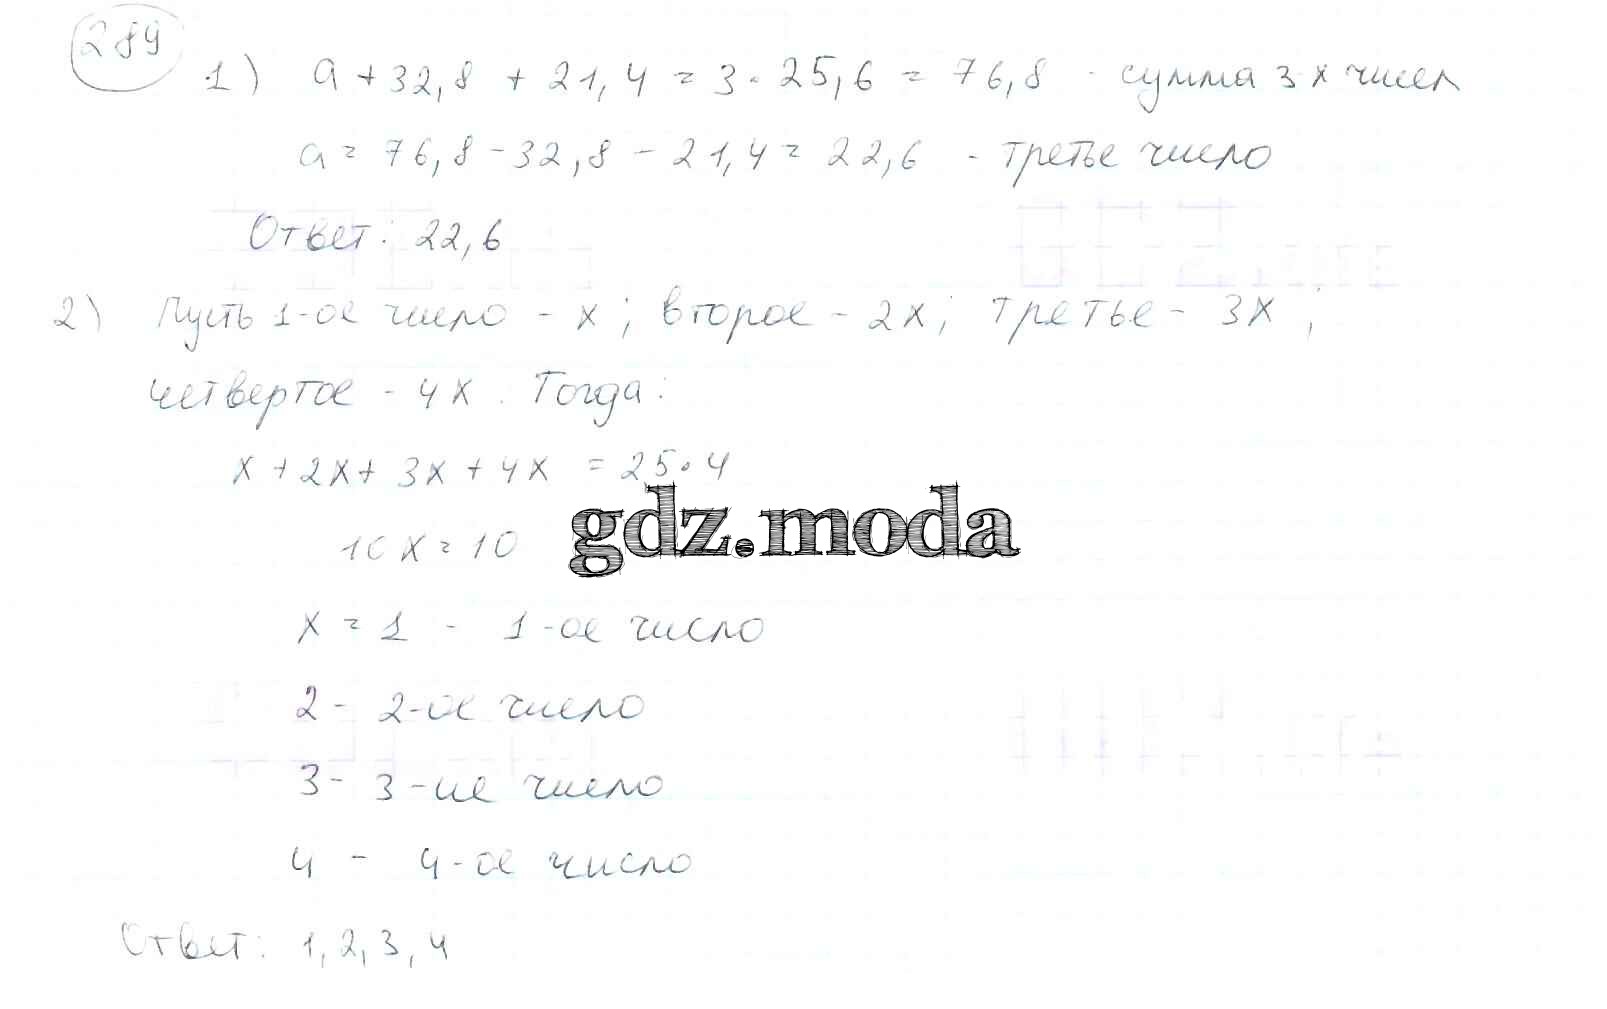 289
1) a + 32,8 + 21,4 = 3 · 25,6 = 76,8 - сумма 3-х чисел
a = 76,8 - 32,8 - 21,4 = 22,6 - третье число
Ответ: 22,6
2) Пусть 1-ое число - x; второе - 2x; третье - 3x;
четвертое - 4x. Тогда:
x + 2x + 3x + 4x = 2,5 · 4
10x = 10
gdz.moda
x = 1 - 1-ое число
2 - 2-ое число
3 - 3-ие число
4 - 4-ое число
Ответ: 1, 2, 3, 4